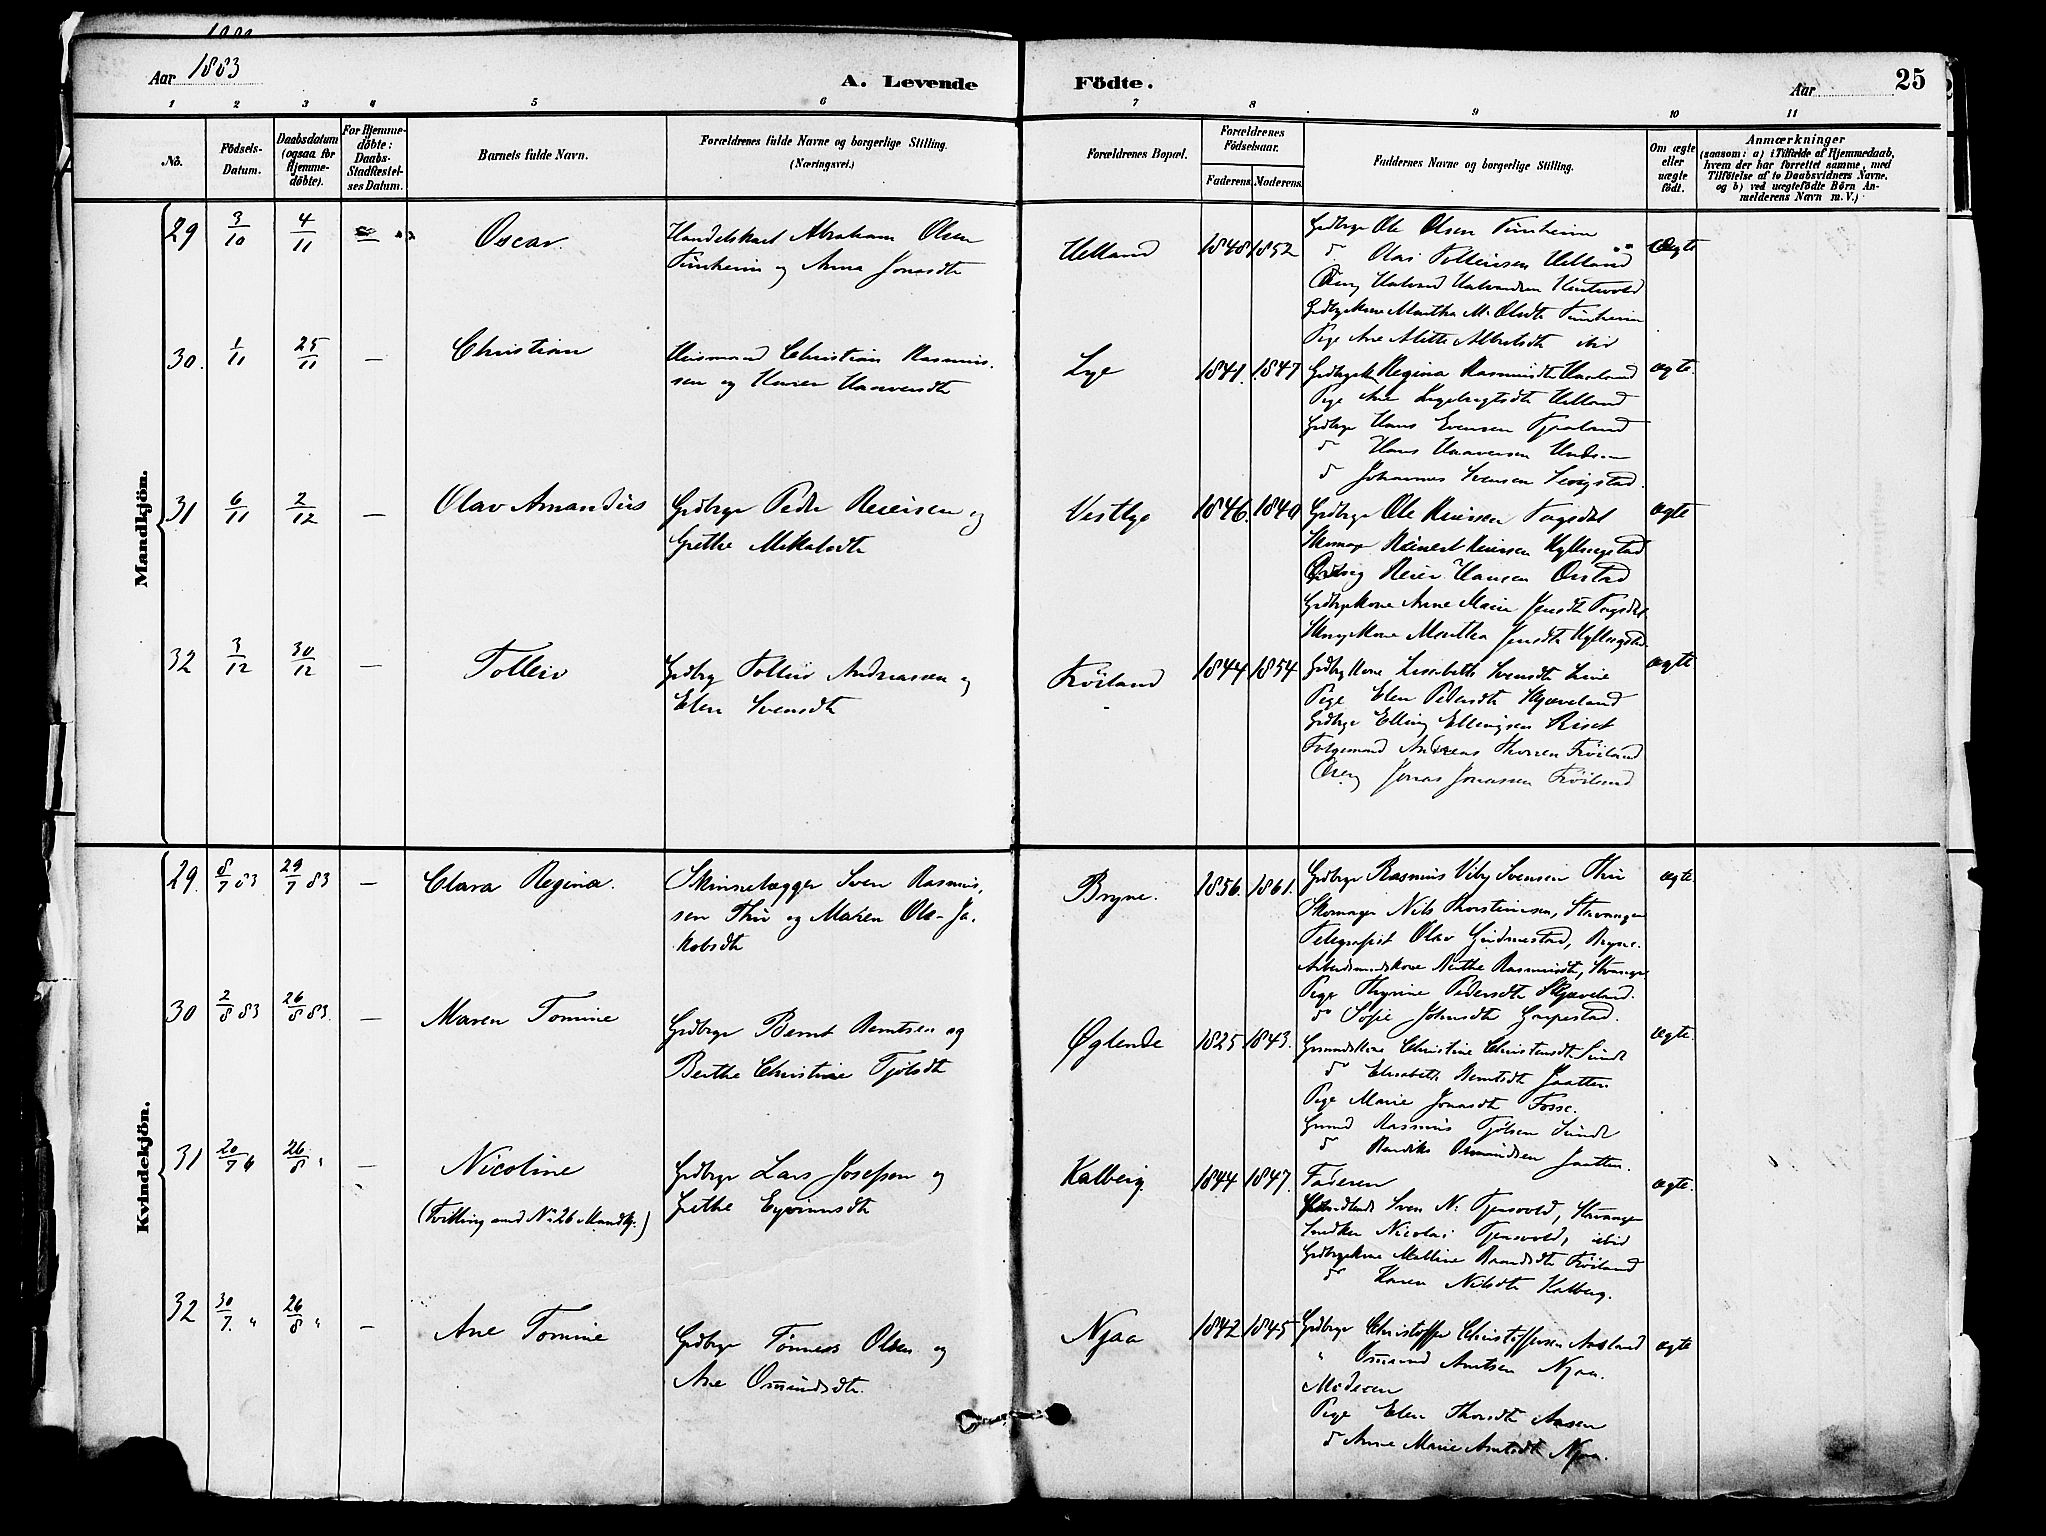 Aar 1883
A. Levende Födte.
Aar
25
1 2 3 4 5 6 7 8 9 10 11
No.
Födsels-Datum.
Daabsdatum (ogsaa for Hjemme-döbte).
For Hjemme-döbte: Daabs-Stadfæstel-ses Datum.
Barnets fulde Navn.
Forældrenes fulde Navne og borgerlige Stilling.
(Næringsvei.)
Forældrenes Bopæl.
Forældrenes Födselsaar.
Faderens. Moderens.
Faddernes Navne og borgerlige Stilling.
Om ægte eller uægte födt.
Anmærkninger
(saasom: a) i Tilfælde af Hjemmedaab,
hvem der har forrettet samme, med
Tilföielse af to Daabsvidners Navne,
og b) ved uægtefödte Börn An-
melderens Navn m. V.)
Mandkjön.
29 3/10 4/11 — Oscar. Handelskarl Abraham Olsen
Tunheim og Anna Jonasdt
Helland 1848 1852
Grdbrgr Ole Olsen Tunheim
d Olai Tolleivsen Helland
Halvard Halvardsen
Grdbrgkone Martha M. Olsdt Tunheim
Pige Ane Malene
Ægte
30. 1/11 25/11 — Christian Huismand Christian Rasmus-
sen og Karen Haavardsdt
Lye 1841. 1847
Regina Rasmusdt
Pige Ane Ingebrigtsdt Helland
Grdbrgr Hans Evensen Tjaaland
d Hans
d Johannes Svensen
ægte.
31 6/11 2/12 — Olav Amandus Grdbrgr Peder Reiersen og
Grethe Mikalsdt
Vestlye 1846. 1840
Grdbrgr Ole Reiersen Fogsdal
Skomag Reinert Reiersen Kyllingstad
Reier Hansen Orstad
Grdbrgkone Anne Marie Jensdt
Martha Jensdt
ægte
32 3/12 30/12 — Tolleiv Grdbrgr Tolleiv Andreassen og
Elen Svensdt
Fröiland 1844 1854
Lisabeth Svensdt Line
Pige Elen Pedersdt Skjæveland
Grdbrgr Elling Ellingsen Riset
Andreas Fröiland
Jonas Jonassen Fröiland
ægte
Kvindekjön.
29. 8/7 83 29/7 83 — Clara Regina. Skinnelægger Sven Rasmus-
sen Thu og Maren Ole-Ja-
kobsdt
Bryne. 1856. 1861.
Grdbrgr Rasmus Svensen Thu
Skomager Nils Thorsteinsen, Stavanger
Telegrafist Olav Gudmestad, Bryne.
Arbeidsmandskone Berthe Rasmusdt, Stavanger
Pige Thyrine Pedersdt Skjæveland.
d Sofie Johnsdt Garpestad.
ægte
30 2/8 83 26/8 83. — Maren Tomine Grdbrgr Bernt Berntsen og
Berthe Christine Tjölsdt
Øglende 1825 1843.
Christine Christensdt Sunde
d Elisabeth Berntsdt Jaatten
Pige Marie Jonasdt Fosse.
Rasmus Tjölsen Sunde
d Osmundsen Jaatten.
Ægte.
31 20/7 26/8 " — Nicoline
(Tvilling med No 26 Mandkj.)
Grdbrgr Lars Josefsen og
Grethe Eyvindsdt
Kalberg. 1844 1847.
Faderen
Sven N. Tjensvold, Stavanger
Snedker Nicolai Tjensvold, ibid
Grdbrgkone Malline Fröiland
d Karen Nilsdt Kalberg.
ægte.
32 30/7. " 26/8 " — Ane Tomine Grdbrgr Tönnes Olsen og
Ane Osmundsdt.
Njaa 1842 1845
Grdbrgr Christoffer Christoffersen Aasland
" Osmund Arntsen Njaa.
Moderen
Pige Elen Thorsdt Aasen
d Anne Marie Arntsdt Njaa.
ægte